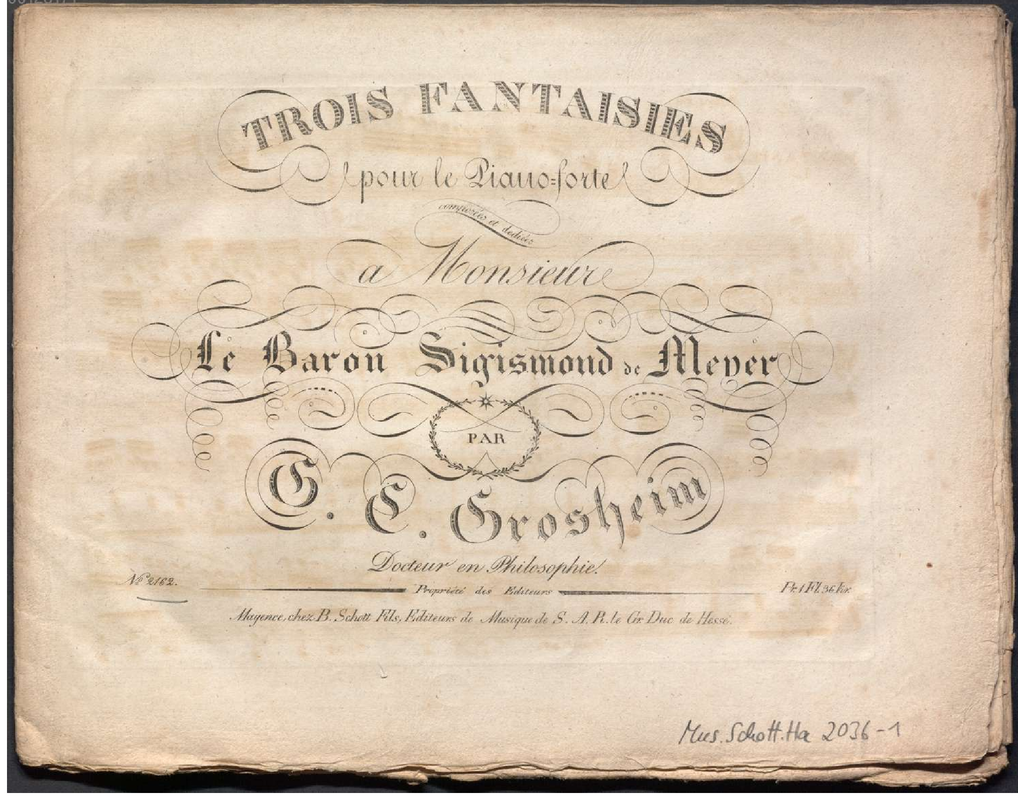 TROIS FANTAISIES
pour le Piano=forte
composées et dediées
a Monsieur
Le Baron Sigismond de Meyer
PAR
G. C. Grosheim
Docteur en Philosophie.
No. 2162.
Propriété des Editeurs
Pr. 1 Fl. 36 Kr.
Mayence, chez B. Schott Fils, Editeurs de Musique de S. A. R. le Gr. Duc de Hesse.
Mus.Schott.Ha 2036-1